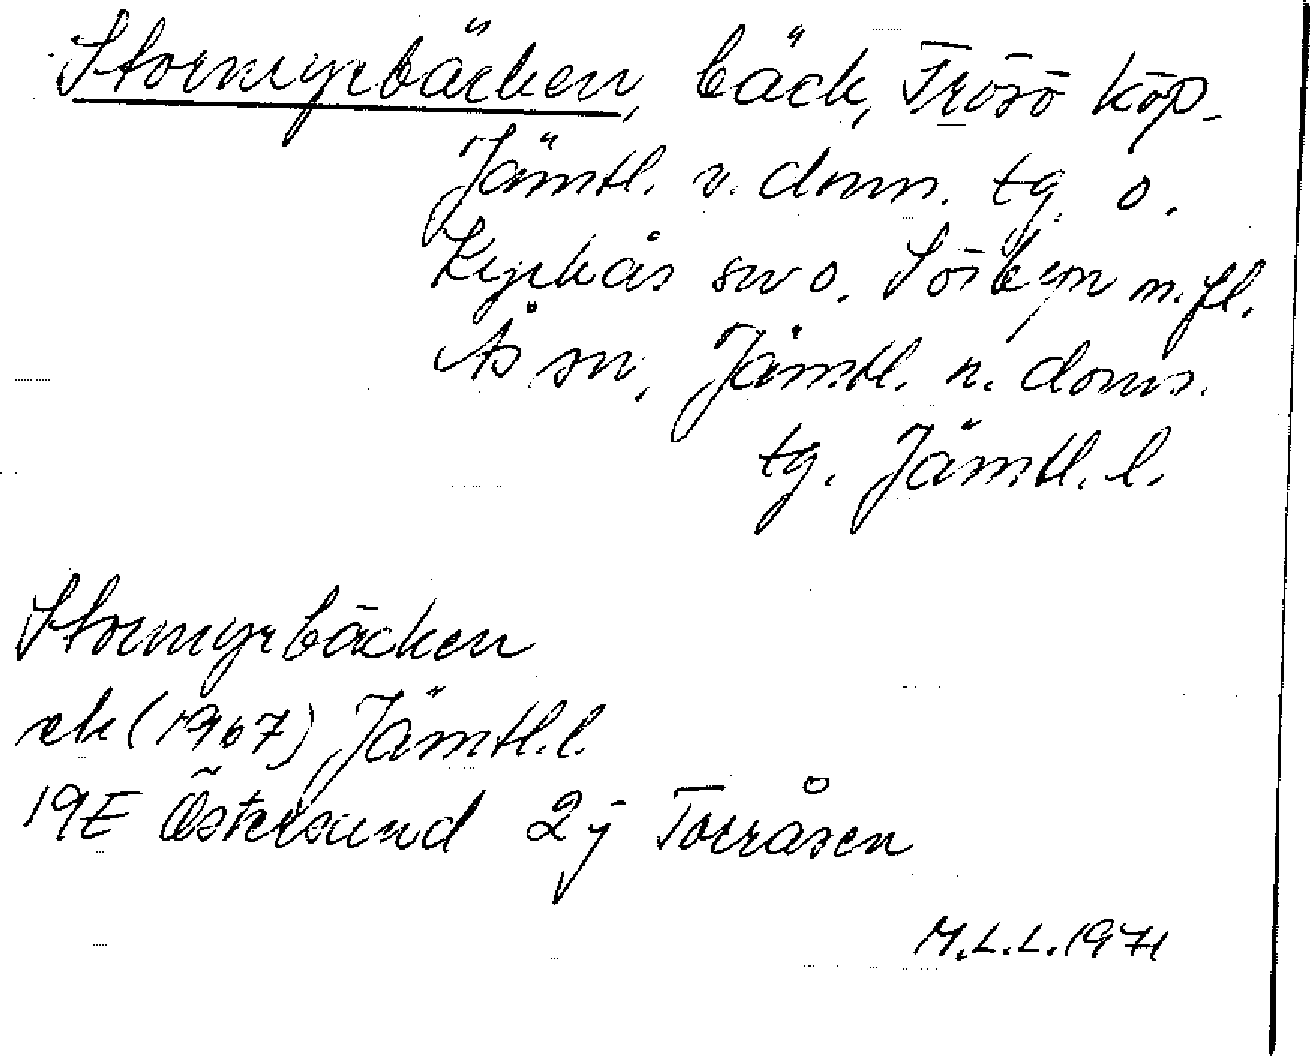 Stormyrbäcken, bäck, Frösö köp.
Jämtl. v. doms. tg. o.
Kyrkås sn o. Sörbyn m. fl.
Ås sn, Jämtl. n. doms.
tg. Jämtl. l.
Stormyrbäcken
ek (1967) Jämtl. l.
19E Östersund 2j Torråsen
M.L.L. 1971